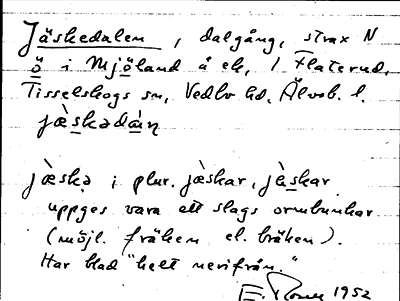 Jäskedalen, dalgång, strax N
ö i Mjöland å ek, 1 Flaterud,
Tisselskogs sn, Vedbo hd, Älvsb. l.
jæ̀skədáɳ
jæ̀skə i plur. jæ̀skar, jæ̀skar
uppges vara ett slags ormbunkar
(möjl. fräken el. bräken).
Har blad "helt nerifrån."
1952